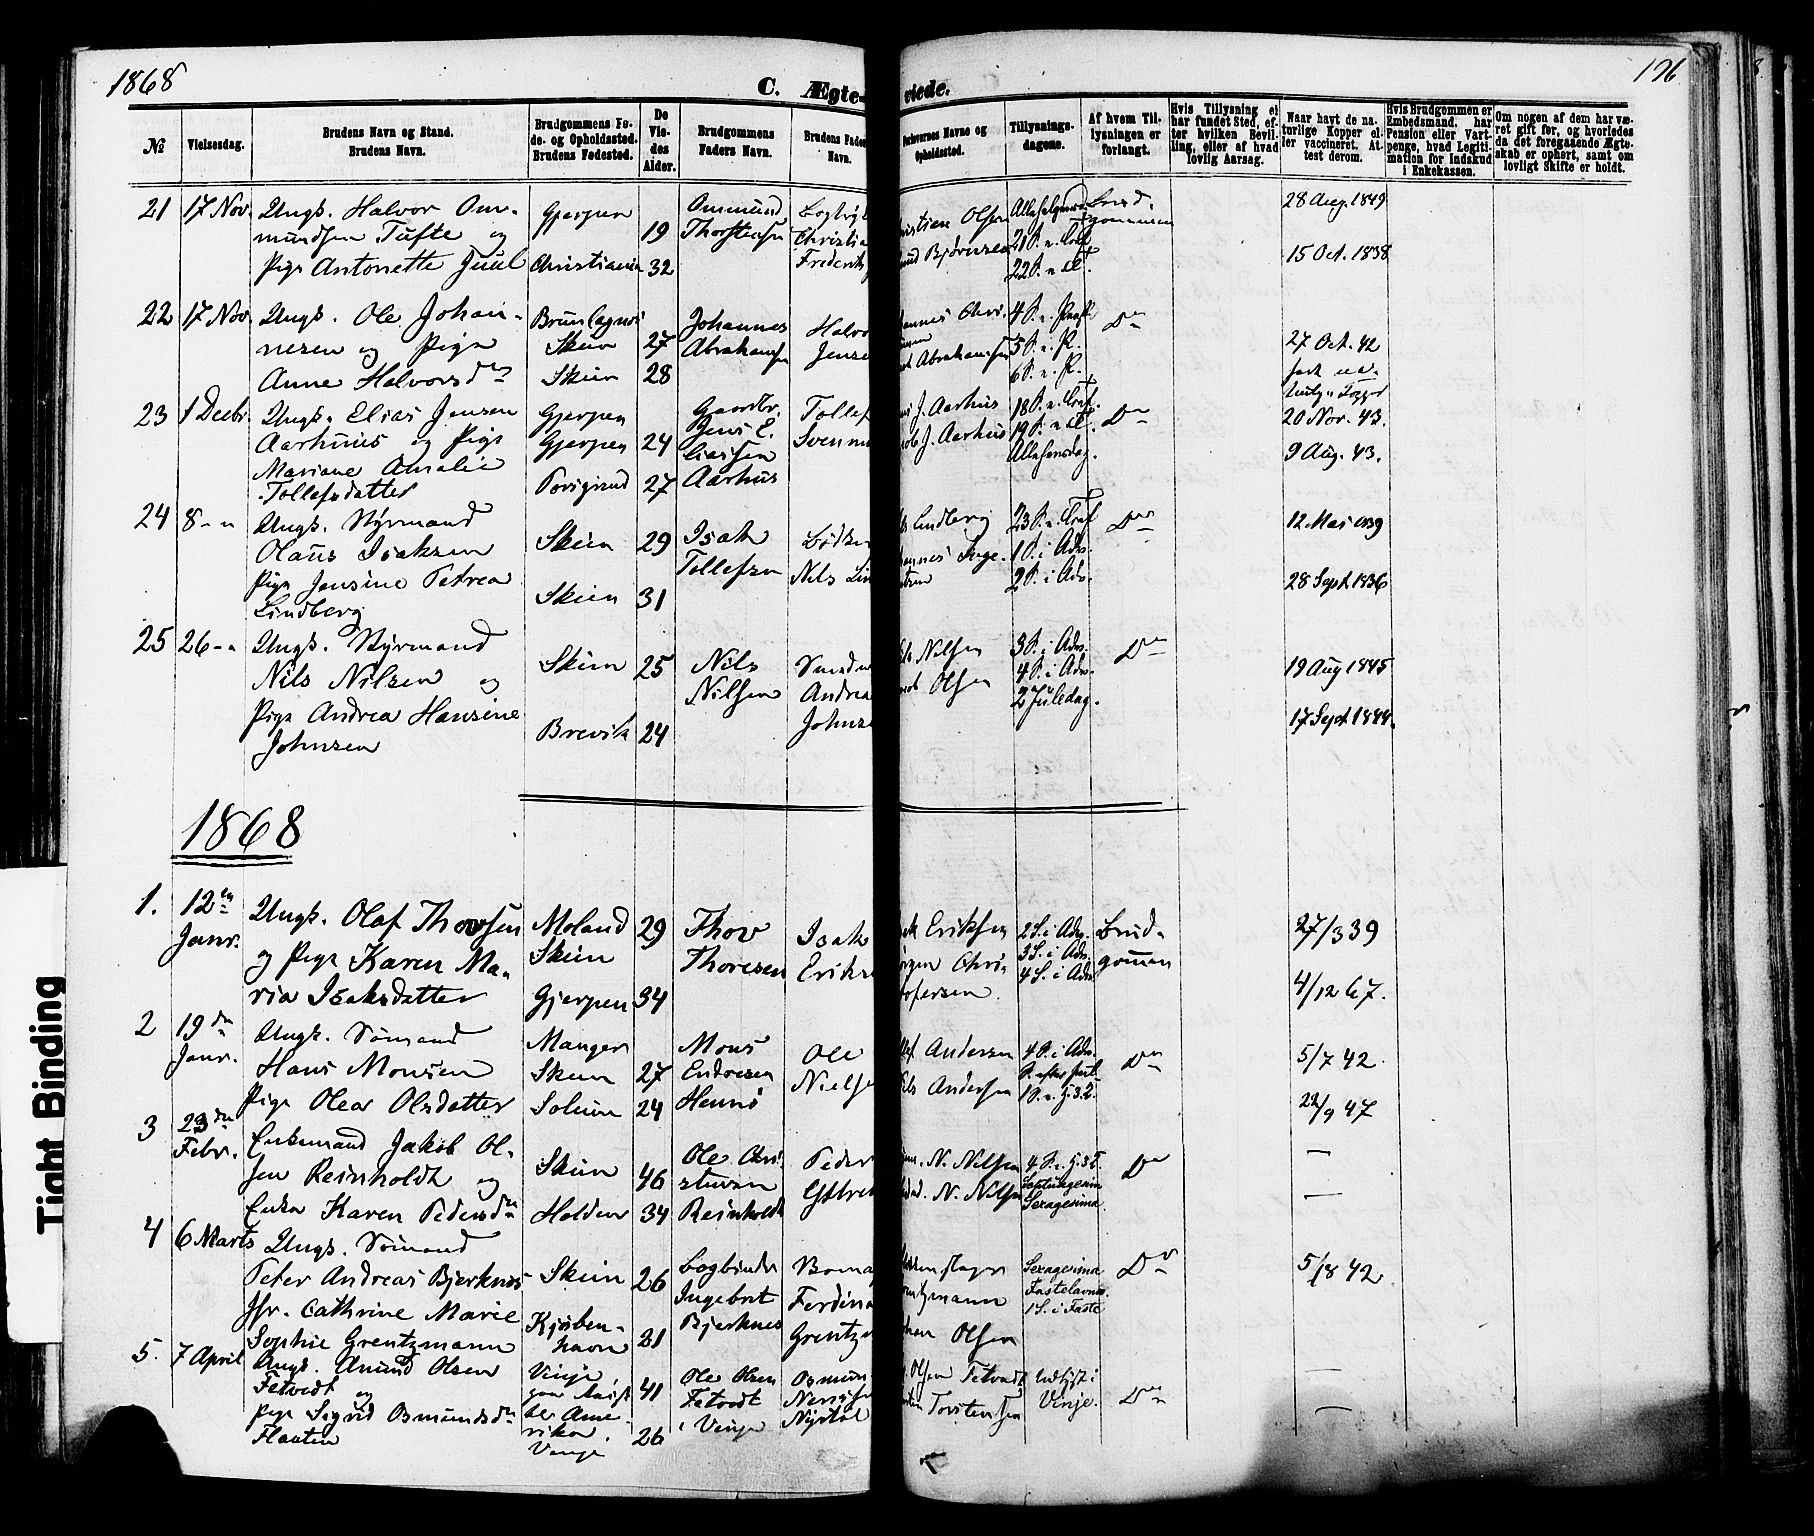 1868
C. Ægte-
viede.
126
№
Vielsesdag.
Brudens Navn og Stand.
Brudens Navn.
Brudgommens Fø-
de- og Opholdssted.
Brudens Fødested.
De
Vie-
des
Alder.
Brudgommens
Faders Navn.
Brudens Fader
Navn.
Forlovernes Navne og
Opholdssted.
Tillysnings-
dagene.
Af hvem Til-
lysningen er
forlangt.
Hvis Tillysning ei
har fundet Sted, ef-
ter hvilken Bevil-
ling, eller af hvad
lovlig Aarsag.
Naar havt de na-
turlige Kopper el-
ler vaccineret. At-
test derom.
Hvis Brudgommen er
Embedsmand, har
Pension eller Vart-
penge, hvad Legiti-
mation for Indskud
i Enkekassen.
Om nogen af dem har væ-
ret gift før, og hvorledes
da det foregaaende Ægte-
skab er ophørt, samt om
lovligt Skifte er holdt.
21 17 Nov. Ungk. Halvor Om-
mundsen Tufte og
Pige Antonette Juul
Gjerpen 19
Christiania 32
Ommund
Thorstensen
Christia
Frederik
Olsen
Bjørnsen
21 S. e. Tref
22 S. e. T.
Brud-
gommen
28 Aug. 1849
15 Oct. 1838
22 17 Nov. Ungk. Ole Johan-
nesen og Pige
Anne Halvorsdn
Skien 27
Skien 28
Johannes
Abrahamsen
Halvor
Jensen
Abrahamsen
4 S. e. Paask
5 S. e. P.
6 S. e. P.
Do
27 Oct. 42
23 1 Decbr. Ungk. Elias Jensen
Aarhuus og Pige
Mariane Amalie
Tollefsdatter
Gjerpen
Gjerpen 24
Porsgrund 27
Gaardbr.
Jens E-
liassen
Aarhus
Tollef
Svenn
J. Aarhus
J. Aarhus
18 S. e. Tref.
19 S. e. T.
Do
20 Nov. 43.
9 Aug. 43.
24 8 - " Ungk. Styrmand
Olaus Isaksen
Pige Jensine Petrea
Lindberg
Skien 29
Skien 31
Isak
Tollefsen
Nils Lin
Lindberg
23 S. e. Tref
1 S. i Adv.
2 S. i Adv.
Do
12 Mai 1839
28 Sept. 1836
25 26 - " Ungk. Styrmand
Nils Nilsen og
Pige Andrea Hansine
Johnsen
Skien 25
Brevik 24
Nils
Nilsen
Andrea
Johnse
Nilsen
Olsen
3 S. i Adv.
4 S. i Adv.
2 Juledag.
Do
19 Aug 1845
17 Sept. 1844.
1868
1. 12te Janr. Ungk. Olaf Thorsen
og Pige Karen Ma-
ria Isaksdatter
Moland 29
Skien
Gjerpen 34
Thor
Thoresen
Isak
Eriks
Eriksen
Jørgen Chri-
stofersen.
2 S. i Adv.
3 S. i Adv.
4 S. i Adv.
Brud-
gommen
27/3 39
4/12 67.
2 19de Janr. Ungk. Sømand
Hans Monsen
Pige Olea Olsdatter
Manger
Skien 27
Solum 24
Mons
Endresen
Ole
Nielse
Andersen
Nils Andersen
4 S. i Adv.
Do
5/7 42.
22/9 47
3 23de Febr. Enkemand Jakob Ol-
sen Reinholdt og
Enke Karen Pedersdn
Skien 46
Holden 34
Ole Chri-
stian
Reinholdt
Peder
N. Nilsen
N. Nilsen
Septuagesima
Sexagesima.
Do
—
—
4 6 Marts Ungk. Sømand
Peter Andreas Bjerknes
Jfr. Cathrine Marie
Sophie Grentzmann
Skien 26
Kjøben-
havn 21
Bogbinder
Ingebret
Bjerknes
Ferdina
Grentzm
Grentzmann
Olsen
Sexagesima
Fastelavns.
1 S. i Faste
Do
5/8 42.
5. 7 April Ungk. Anund Olsen
Fetvedt og
Pige Sigrid Osmundsdn
Flaaten
Vinje, 41
Ame-
rika.
Vinje 26
Ole Olsen
Fetvedt
i Vinje
Osmun
Olsen Fetvedt
Torstensen
Udlyst i
Vinje.
Do
—
—
Tight Binding